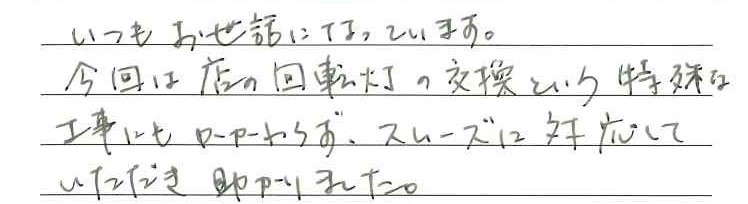 いつもお世話になっています。
今回は店の回転灯の交換という特殊な
工事にもかかわらず、スムーズに対応して
いただき助かりました。